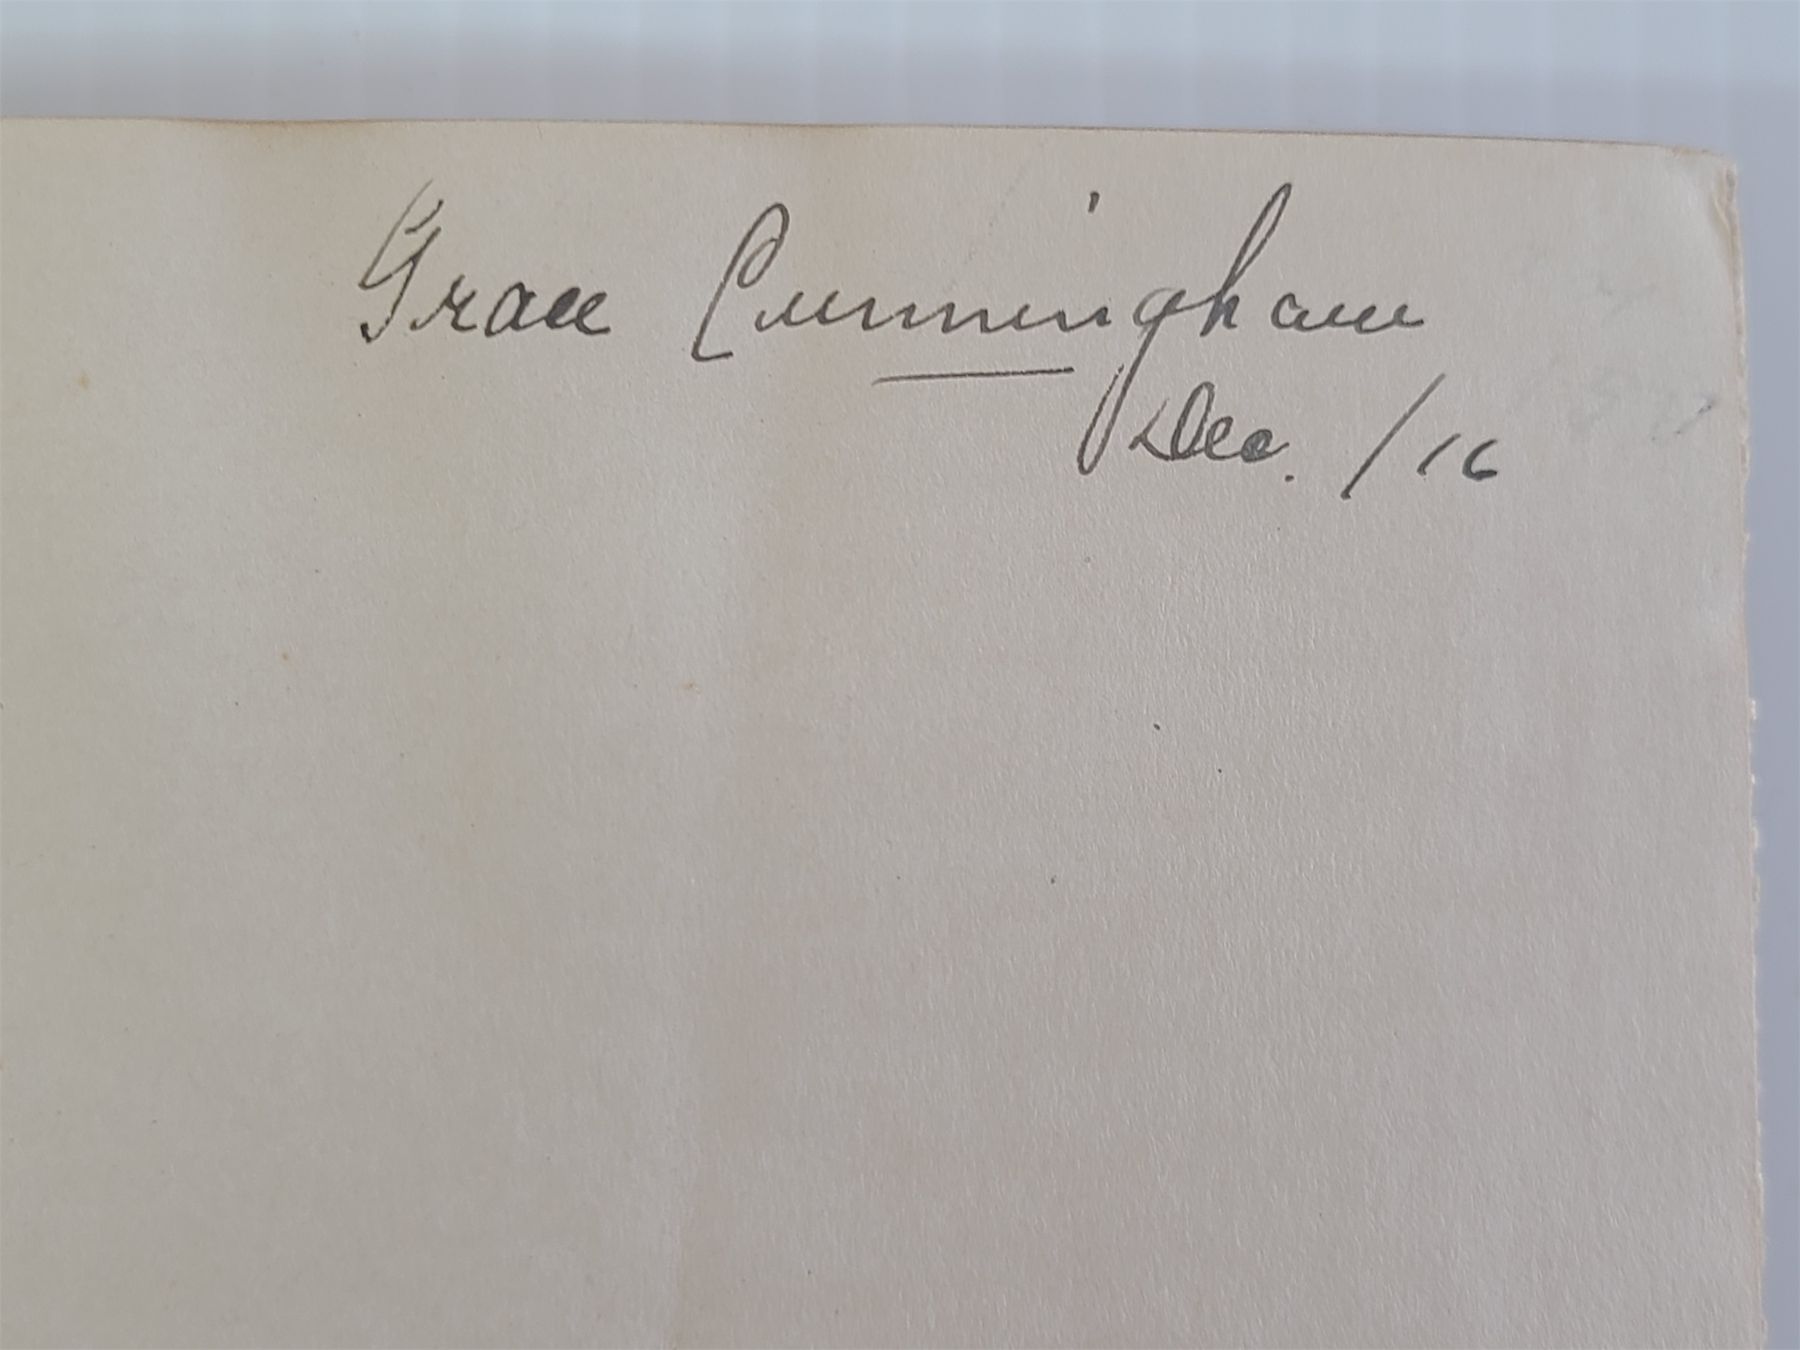 Grace Cunningham
Dec. /16